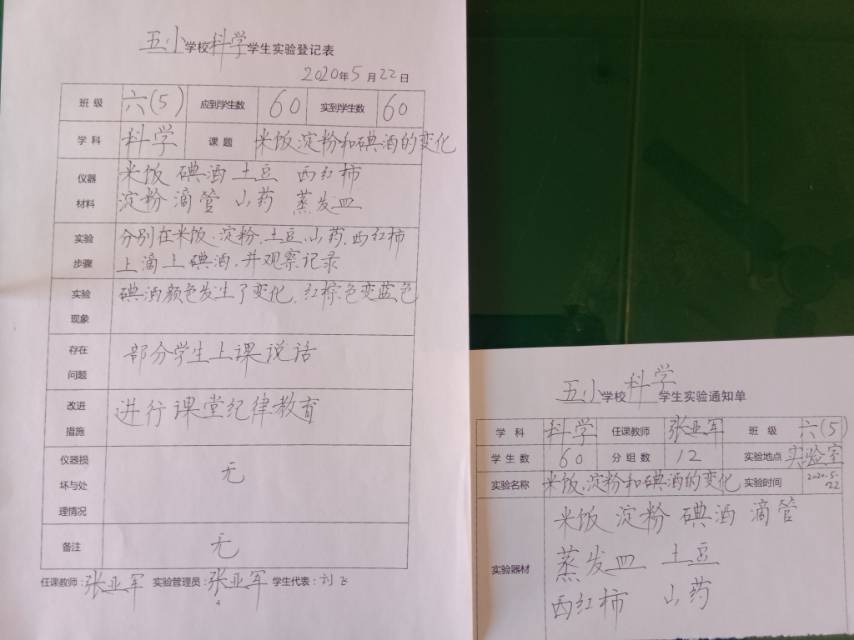 五小学校科学学生实验登记表
2020年5月22日
班级 六(5) 应到学生数 60 实到学生数 60
学科 科学 课题 米饭、淀粉和碘酒的变化
仪器材料 米饭 碘酒 土豆 西红柿
淀粉 滴管 山药 蒸发皿
实验步骤 分别在米饭、淀粉、土豆、山药、西红柿
上滴上碘酒,并观察记录
实验现象 碘酒颜色发生了变化,红棕色变蓝色
存在问题 部分学生上课说话
改进措施 进行课堂纪律教育
仪器损坏与处理情况 无
备注 无
任课教师:张亚军 实验管理员:张亚军 学生代表:刘飞
五小学校科学学生实验通知单
学科 科学 任课教师 张亚军 班级 六(5)
学生数 60 分组数 12 实验地点 实验室
实验名称 米饭、淀粉和碘酒的变化 实验时间 2020.5.22
实验器材 米饭 淀粉 碘酒 滴管
蒸发皿 土豆
西红柿 山药